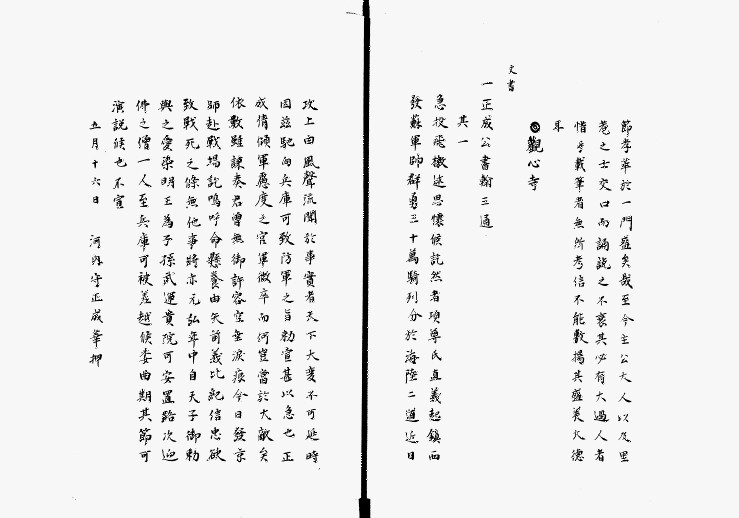 節孝萃於一門盛矣哉至今主公大人以及里
巷之士交口而誦説之不衰其必有大過人者
惜乎載筆者無所考信不能敷揚其盛美大德
耳
◉觀心寺
文書
一正成公書翰三通
其一
急投飛檄述思懐候訖然者頃尊氏直義起鎮西
發蘇軍帥群勇三十萬騎列分於海陸二道近日
攻上由風聲流聞於事實者天下大変不可延時
因茲馳向兵庫可致防軍之旨勅宣甚以急也正
成倩傾軍慮度之官軍微卒而何豈當於大敵矣
依數雖諫奏君曽無御許容空垂淚痕今日發京
師赴戰場訖嗚呼命懸養由矢前義比紀信忠欲
致戰死之條無他事將亦元弘年中自天子御勅
與之愛染明王為子孫武運貴院可安置路次迎
佛之僧一人至兵庫可被差越候委曲期其節可
演説候也不宣
五月十六日　河内守正成華押